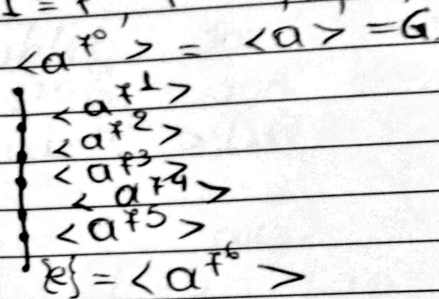 <a^7^0> = <a> = G
<a^7^1>
<a^7^2>
<a^7^3>
<a^7^4>
<a^7^5>
{e} = <a^7^6>